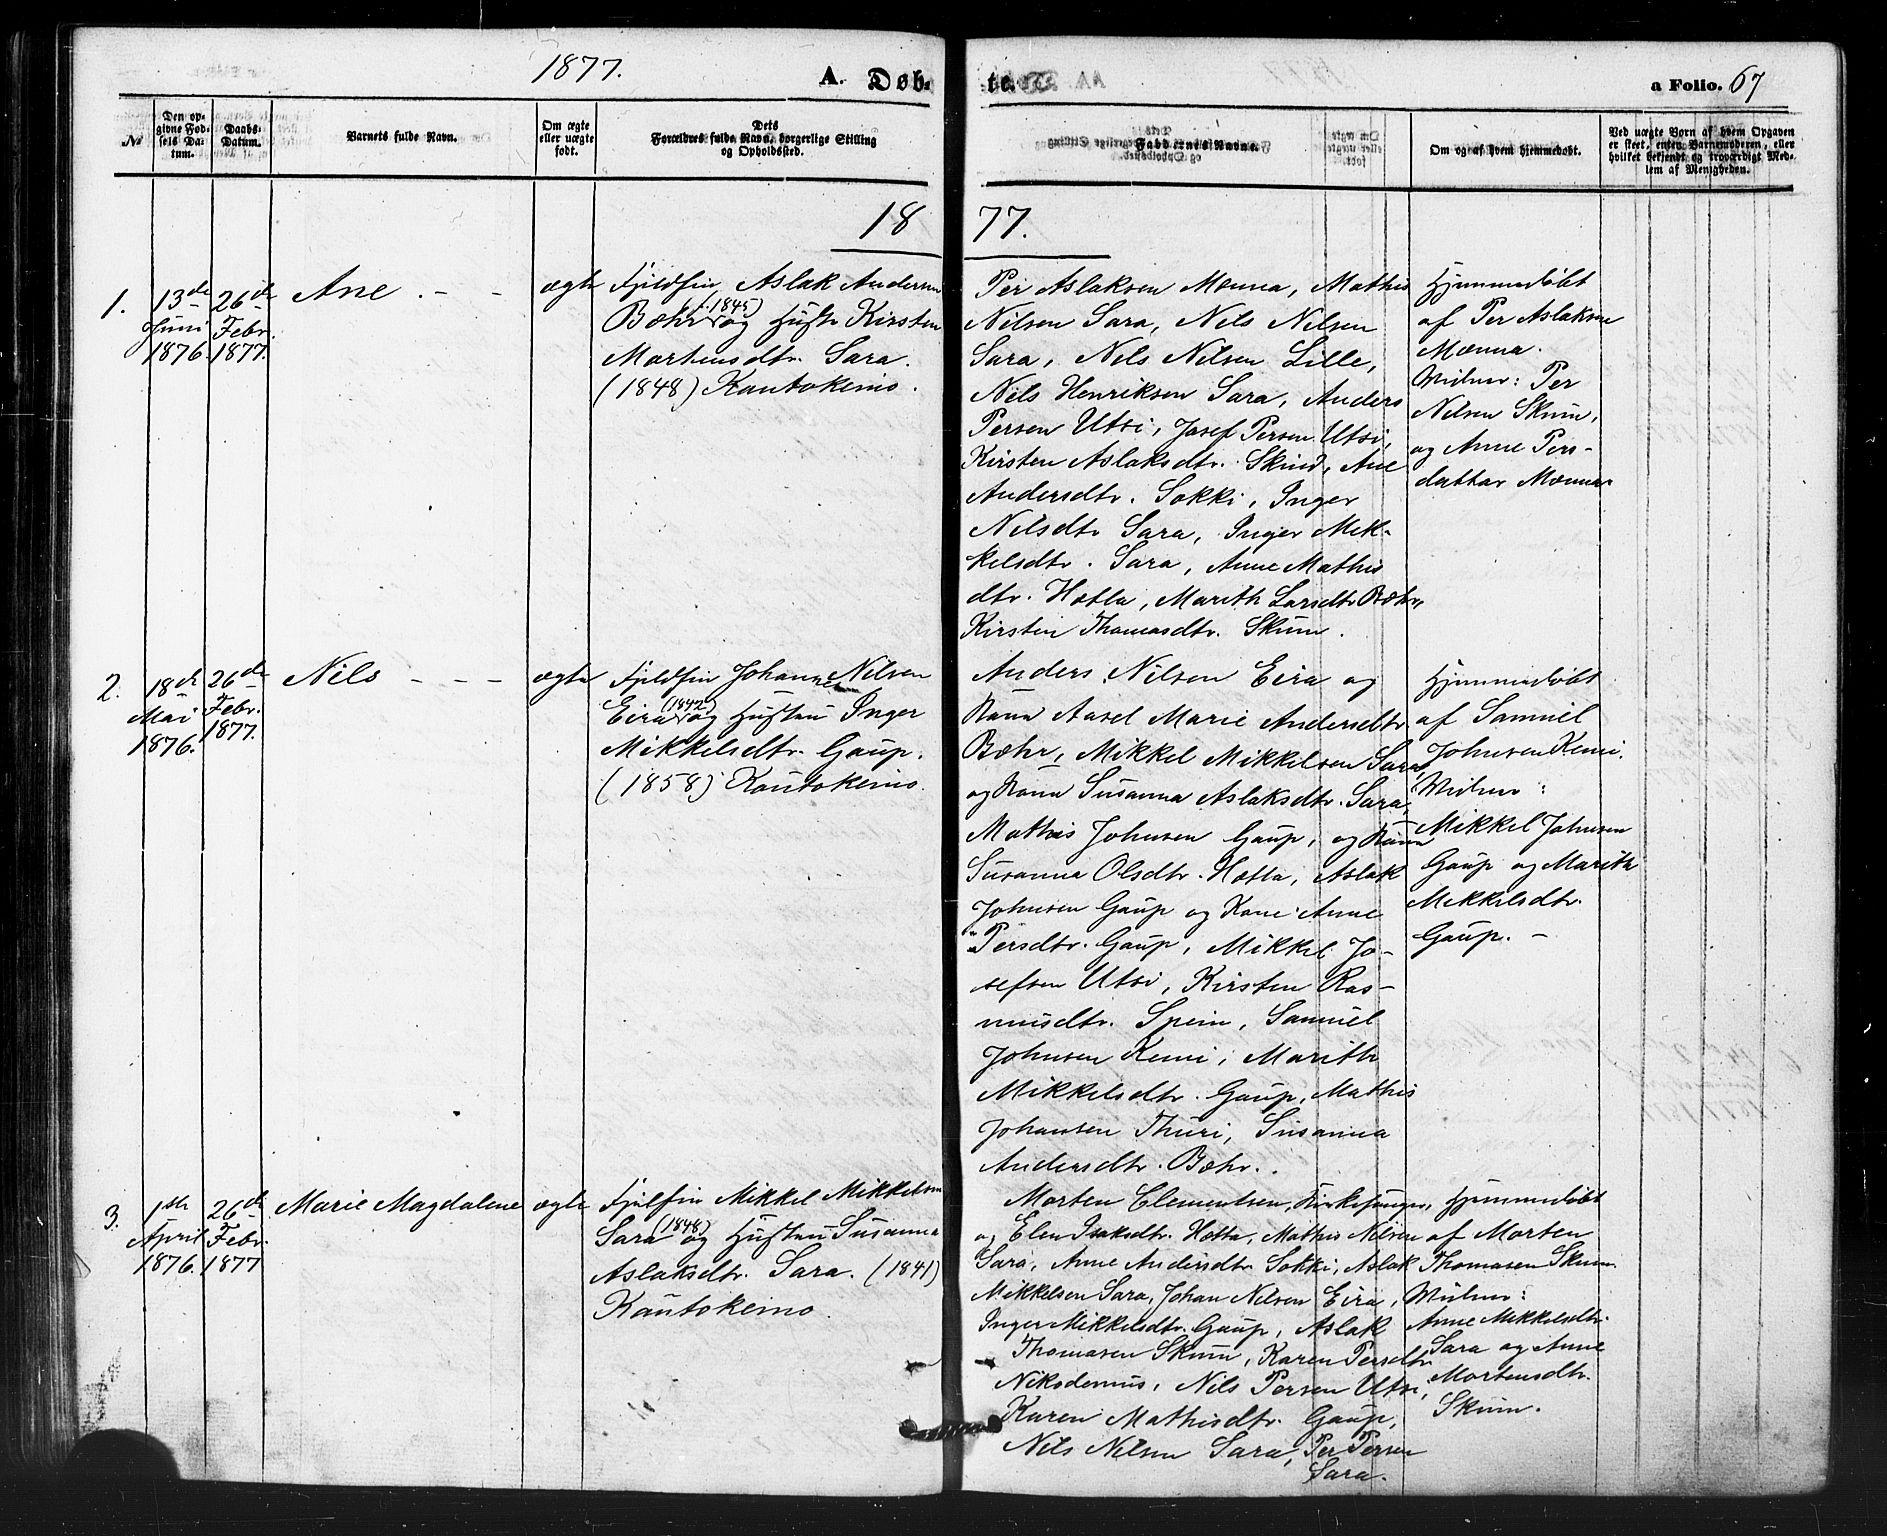 1877.
A. Døb-
te.
a Folio. 67
No
Den op-
givne Fød-
sels Da-
tum.
Daabs-
Datum.
Barnets fulde Navn.
Om ægte
eller uægte
født.
Dets
Forældres fulde Navn, borgerlige Stilling
og Opholdssted.
Faddernes Navne.
Om og af hvem hjemmedøbt.
Ved uægte Børn af hvem Opgaven
er skeet, enten Barnemoderen, eller
hvilket bekjendt og troværdigt Med-
lem af Menigheden.
18 77.
1.
13de
Juni
1876.
26de
Febr.
1877.
Ane . - -
ægte
Fjeldfin Aslak Andersen
Bæhr (1845) og Hustr Kirsten
Mortensdtr. Sara.
(1848) Kautokeino.
Per Aslaksen Mænna, Mathis
Nilsen Sara, Nils Nilsen
Sara, Nils Nilsen Lille,
Nils Henriksen Sara, Anders
Persen Utsi, Josef Persen Utsi,
Kirsten Aslaksdtr. Skind, Ane
Andersdtr. Sokki, Inger
Nilsdtr Sara, Inger Mik-
kelsdtr. Sara, Anne Mathis
dtr. Hætta, Marith Larsdtr Bæhr,
Kirsten Thomasdtr. Skum.
Hjemmedøbt
af Per Aslaksen
Mænna.
Vidner: Per
Nilsen Skum,
og Anne Pers-
datter Mænna
2.
18de
Mai
1876.
26de
Febr.
1877.
Nils - - -
ægte
Fjeldfin Johannes Nilsen
Eira (1842) og Hustru Inger
Mikkelsdtr. Gaup.
(1858) Kautokeino.
Anders Nilsen Eira og
Kone Aasel Marie Andersdtr
Bæhr, Mikkel Mikkelsen Sara,
og Kone Susanna Aslaksdtr. Sara,
Mathis Johnsen Gaup, og Kone
Susanna Olsdtr. Hætta, Aslak
Johnsen Gaup og Kone Anne
Persdtr. Gaup, Mikkel Jo-
sefsen Utsi, Kirsten Ras-
musdtr. Spein, Samuel
Johnsen Kemi, Marith
Mikkelsdtr. Gaup, Mathis
Johansen Thuri, Susanna
Andersdtr. Bæhr.
Hjemmedøbt
af Samuel
Johnsen Kemi.
Vidner:
Mikkel Johnsen
Gaup og Marith
Mikkelsdtr.
Gaup. -
3.
1ste
April
1876.
26de
Febr.
1877
Marie Magdalene
ægte
Fjelfin Mikkel Mikkelsen
Sara (1848) og Hustru Susanna
Aslaksdtr. Sara. (1841)
Kautokeino.
Morten Clementsen, Kirkesanger,
og Elen Isaksdtr. Hætta, Mathis Nilsen
Sara, Anne Andersdtr Sokki, Aslak
Mikkelsen Sara, Johan Nilsen Eira,
Inger Mikkelsdtr. Gaup, Aslak
Thomasen Skum, Karen Persdtr
Nikodemus, Nils Persen Utsi,
Karen Mathisdtr. Gaup,
Nils Nilsen Sara, Per Persen
Sara.
Hjemmedøbt
af Morten
Thomasen Skum.
Vidner:
Anne Mikkelsdtr.
Sara og Anne
Mortensdtr.
Skum.